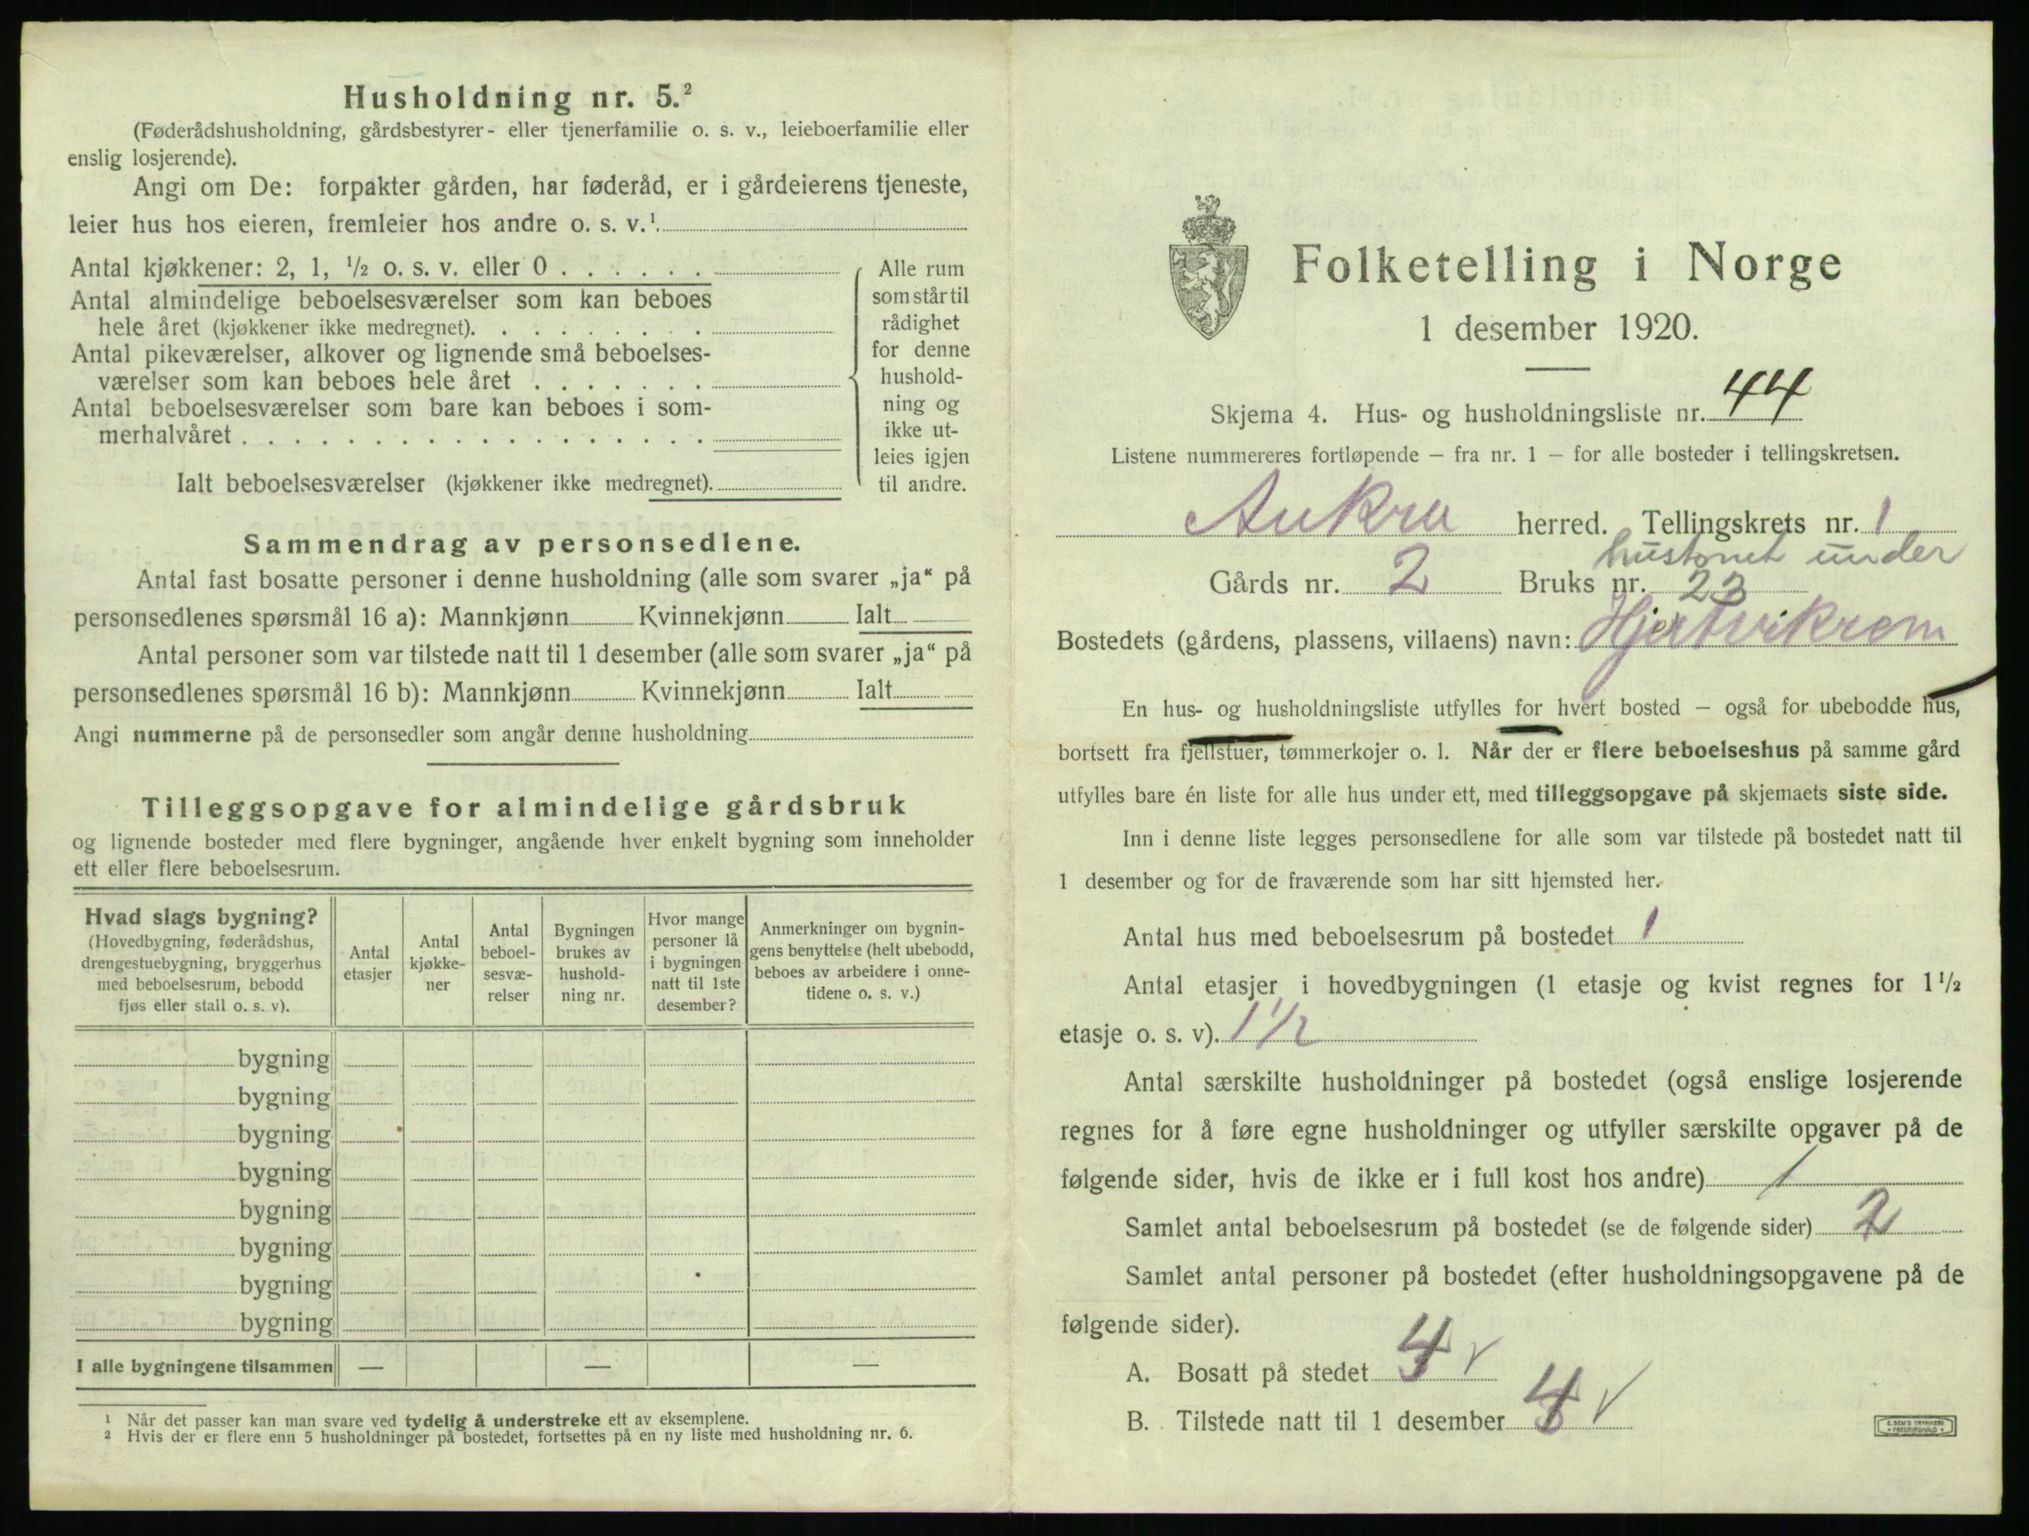 Husholdning nr. 5.²
(Føderådshusholdning, gårdsbestyrer- eller tjenerfamilie o. s. v., leieboerfamilie eller
enslig losjerende).
Angi om De: forpakter gården, har føderåd, er i gårdeierens tjeneste,
leier hus hos eieren, fremleier hos andre o. s. v.¹
Antal kjøkkener: 2, 1, ½ o. s. v. eller 0 . . . . . .
Antal almindelige beboelsesværelser som kan beboes
hele året (kjøkkener ikke medregnet). . . . . . . . .
Antal pikeværelser, alkover og lignende små beboelses-
værelser som kan beboes hele året . . . . . . .
Antal beboelsesværelser som bare kan beboes i som-
merhalvåret . . . . . . . . . . . . . . . . . .
Ialt beboelsesværelser (kjøkkener ikke medregnet).
Alle rum
som står til
rådighet
for denne
hushold-
ning og
ikke ut-
leies igjen
til andre.
Sammendrag av personsedlene.
Antal fast bosatte personer i denne husholdning (alle som svarer „ja“ på
personsedlenes spørsmål 16 a): Mannkjønn Kvinnekjønn Ialt
Antal personer som var tilstede natt til 1 desember (alle som svarer „ja“ på
personsedlenes spørsmål 16 b): Mannkjønn Kvinnekjønn Ialt
Angi nummerne på de personsedler som angår denne husholdning
Tilleggsopgave for almindelige gårdsbruk
og lignende bosteder med flere bygninger, angående hver enkelt bygning som inneholder
ett eller flere beboelsesrum.
Hvad slags bygning?
(Hovedbygning, føderådshus,
drengestuebygning, bryggerhus
med beboelsesrum, bebodd
fjøs eller stall o. s. v).
Antal
etasjer
Antal
kjøkke-
ner
Antal
beboel-
sesvæ-
relser
Bygningen
brukes av
hushold-
ning nr.
Hvor mange
personer lå
i bygningen
natt til 1ste
desember?
Anmerkninger om bygnin-
gens benyttelse (helt ubebodd,
beboes av arbeidere i onne-
tidene o. s. v.)
bygning
bygning
bygning
bygning
bygning
bygning
bygning
bygning
I alle bygningene tilsammen — — —
¹ Når det passer kan man svare ved tydelig å understreke ett av eksemplene.
² Hvis der er flere enn 5 husholdninger på bostedet, fortsettes på en ny liste med husholdning nr. 6.
Folketelling i Norge
1 desember 1920.
Skjema 4. Hus- og husholdningsliste nr. 44
Listene nummereres fortløpende — fra nr. 1 — for alle bosteder i tellingskretsen.
Aukra herred. Tellingskrets nr. 1
hustomt under
Gårds nr. 2 Bruks nr. 23
Bostedets (gårdens, plassens, villaens) navn: Hjertvikrem
En hus- og husholdningsliste utfylles for hvert bosted — også for ubebodde hus,
bortsett fra fjellstuer, tømmerkojer o. l. Når der er flere beboelseshus på samme gård
utfylles bare én liste for alle hus under ett, med tilleggsopgave på skjemaets siste side.
Inn i denne liste legges personsedlene for alle som var tilstede på bostedet natt til
1 desember og for de fraværende som har sitt hjemsted her.
Antal hus med beboelsesrum på bostedet 1
Antal etasjer i hovedbygningen (1 etasje og kvist regnes for 1½
etasje o. s. v). 1 1/2
Antal særskilte husholdninger på bostedet (også enslige losjerende
regnes for å føre egne husholdninger og utfyller særskilte opgaver på de
følgende sider, hvis de ikke er i full kost hos andre) 1
Samlet antal beboelsesrum på bostedet (se de følgende sider) 2
Samlet antal personer på bostedet (efter husholdningsopgavene på de
følgende sider).
A. Bosatt på stedet 4 ✓
B. Tilstede natt til 1 desember 4 ✓
E. SEM'S TRYKKERI
FREDRIKSHALD